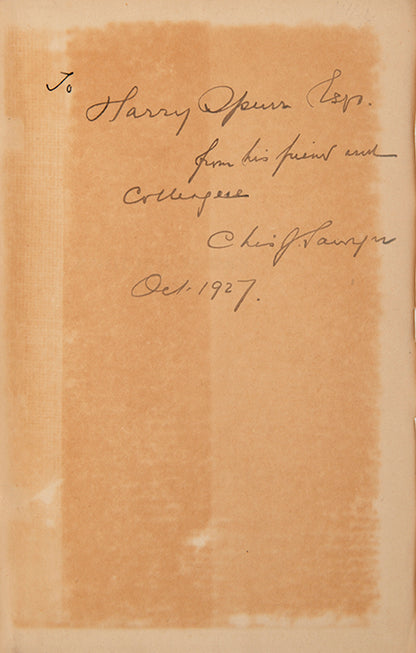 To
Harry Spurr Esq.
from his friend and
Colleague
Chas J. Sawyer
Oct. 1927.